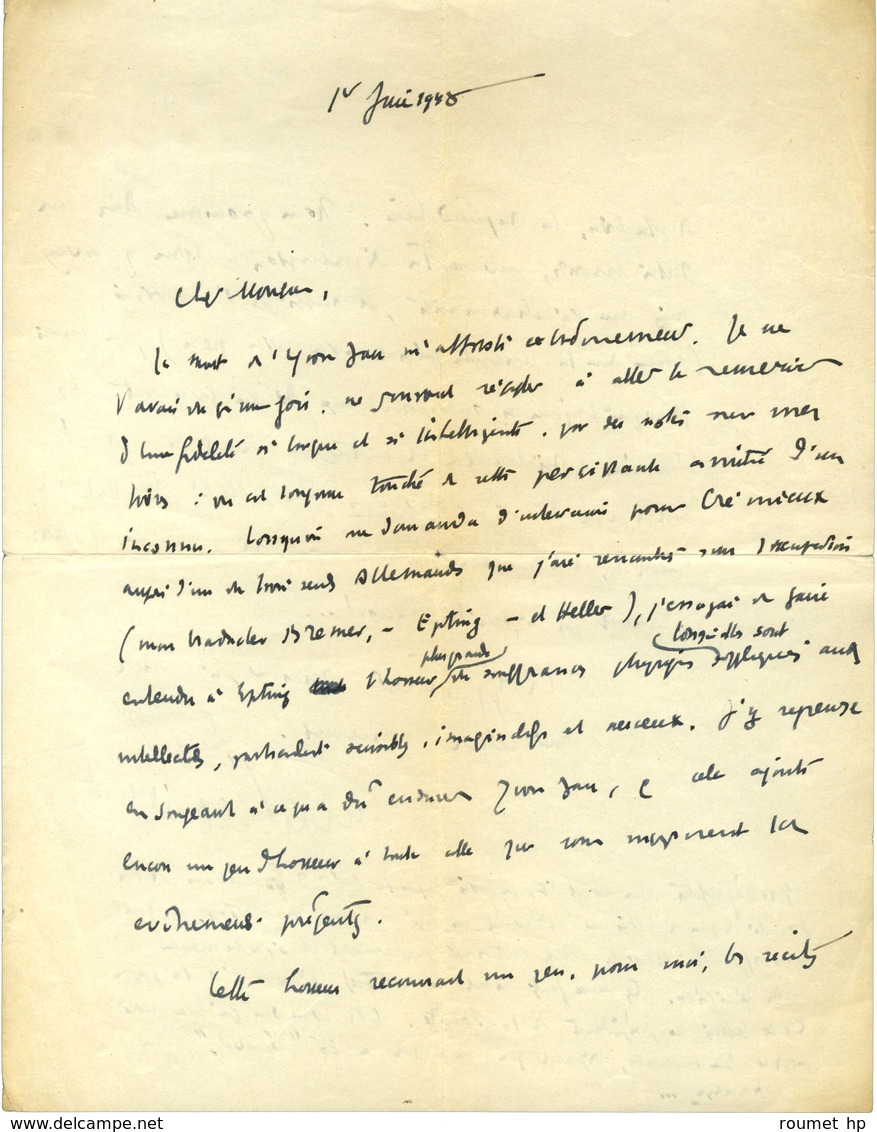 1er Juin 1945
Cher Monsieur,
La mort d'Yvon Jan m'attriste extrêmement. Je ne
l'avais vu qu'une fois, ne pouvant résister à aller le remercier
d'une fidélité si longue et si intelligente, par des notes sur mes
livres : on est toujours touché de cette persistante amitié d'un
inconnu. Lorsqu'on me demanda d'intervenir pour Crémieux
auprès d'un des trois seuls Allemands que j'aie rencontrés sous l'occupation
(mon traducteur Bremer, - Epting - et Heller), j'essayai de faire
entendre à Epting l'horreur plus grande des souffrances physiques lorsqu'elles sont appliquées aux
intellectuels, particulièrement sensibles, imaginatifs et nerveux. J'y repense
en songeant à ce qu'a dû endurer Yvon Jan, et cela ajoute
encore un peu d'horreur à toute celle que nous inspirent les
événements présents.
Cette horreur recouvrait un peu, pour moi, les récits
www.delcampe.net
roumet hp